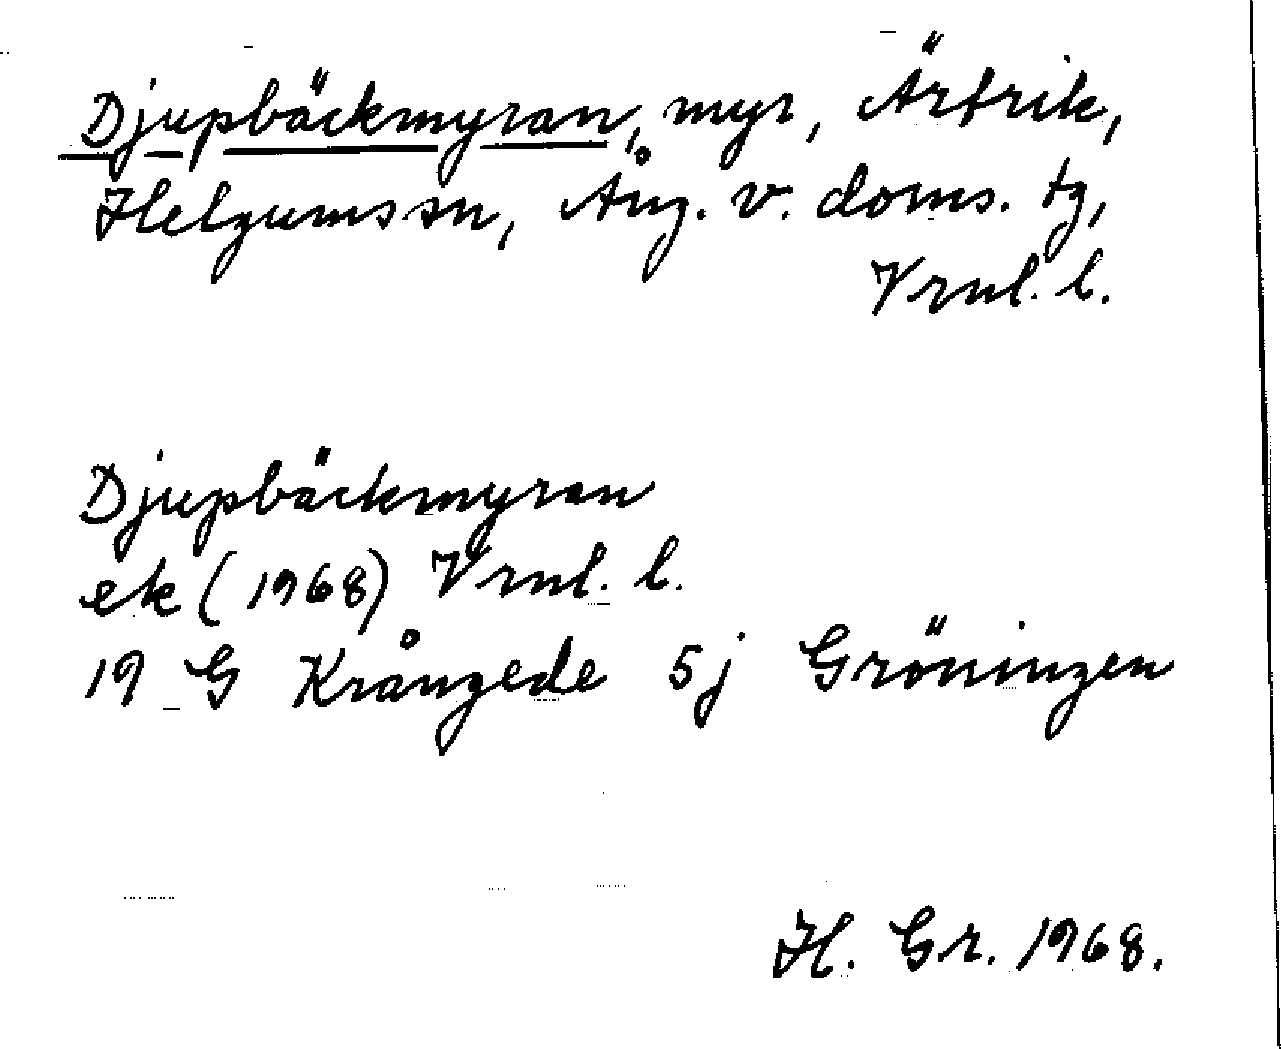 Djupbäckmyran, myr, Ärtrik,
Helgums sn, Ång. v. doms. tg,
Vrnl. l.
Djupbäckmyran
ek (1968) Vrnl. l.
19 G Krångede 5j Gröningen
H. Gr. 1968.